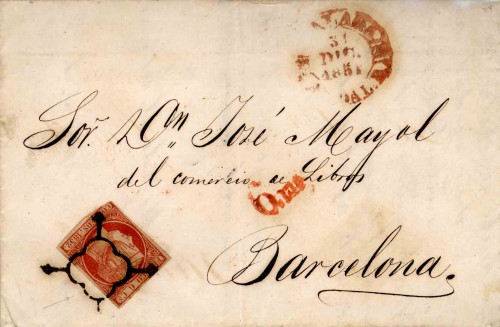 31
DIC.
1851
Sor. Dn José Mayol
del comercio de Libros
Barcelona.